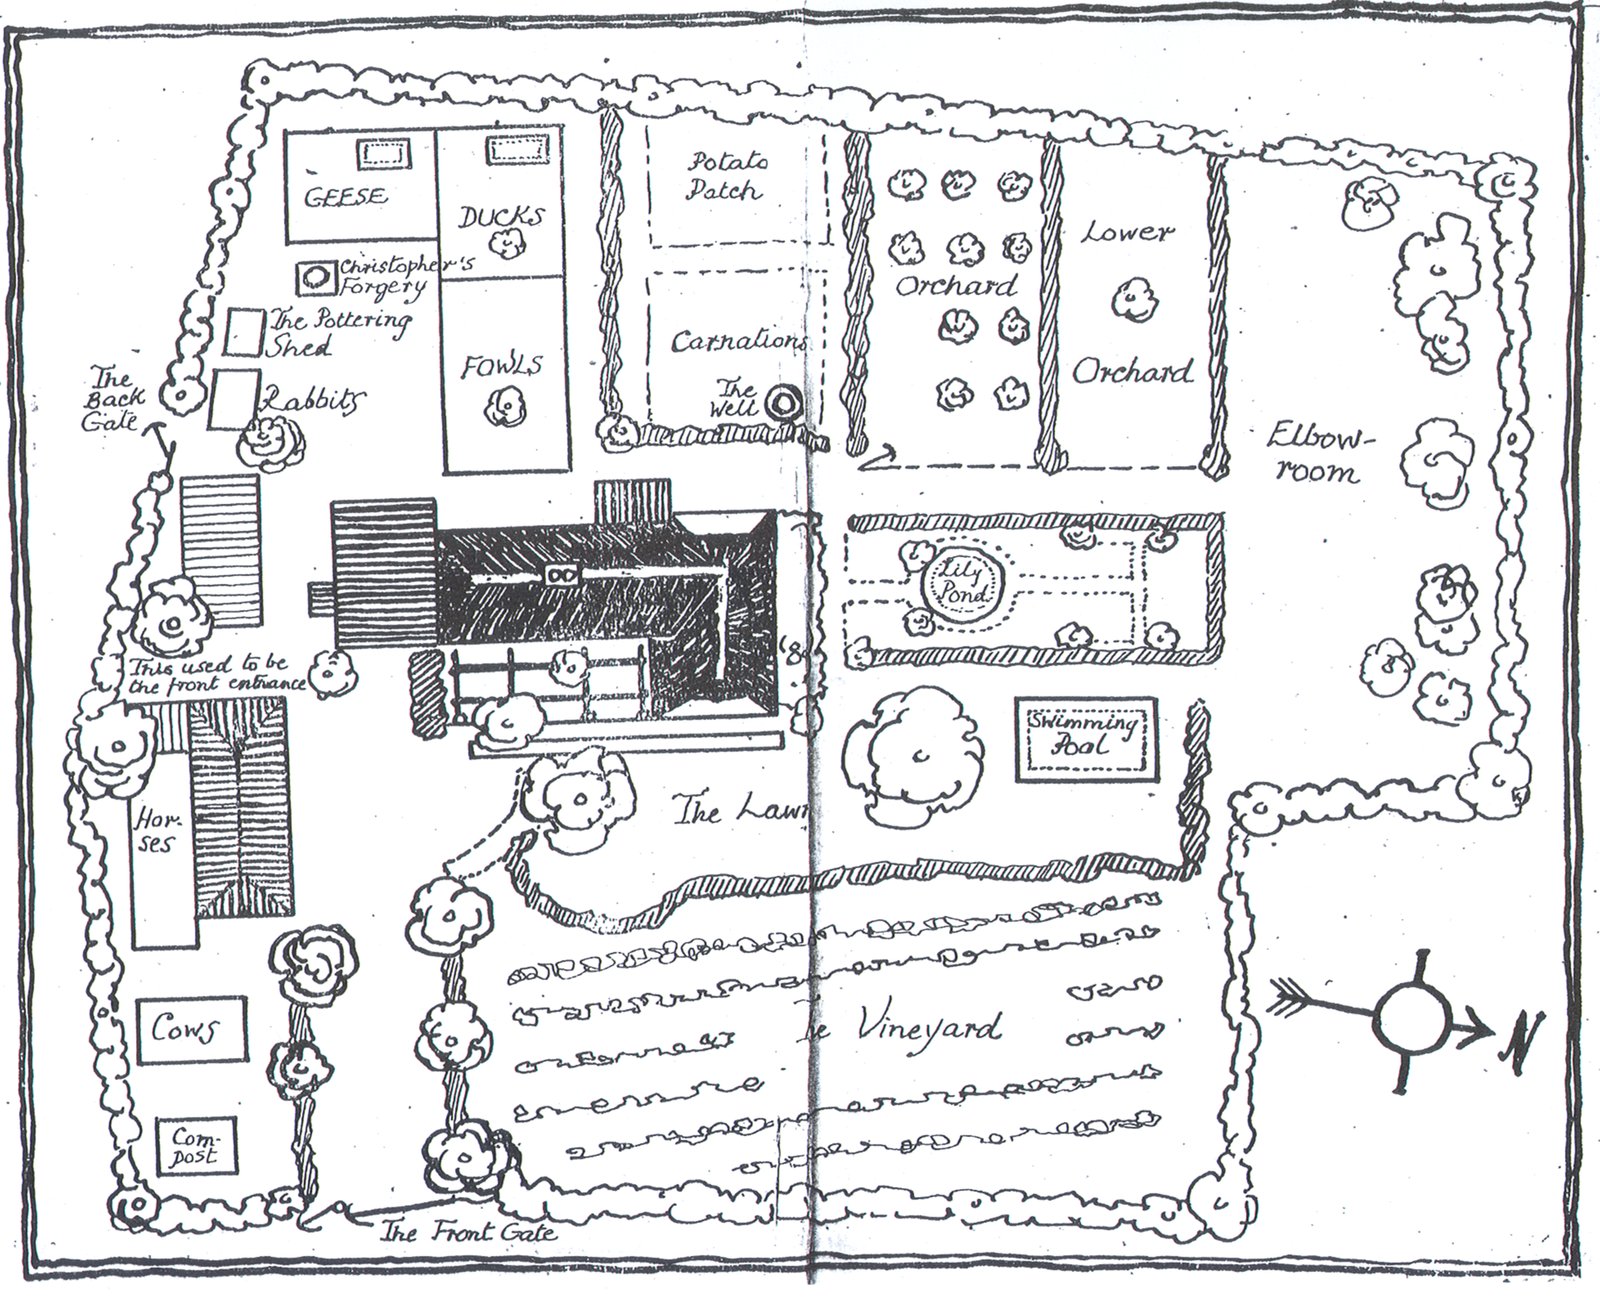 Potato
Patch
GEESE
DUCKS
Christopher's
Forgery
Lower
Orchard
The Pottering
Shed
Carnations
FOWLS
Orchard
The
Back
Gate
Rabbits
The
Well
Elbow-
room
Lily
Pond
This used to be
the front entrance
Swimming
Pool
The Lawn
Hor-
ses
Vineyard
Cows
N
Com-
post
The Front Gate